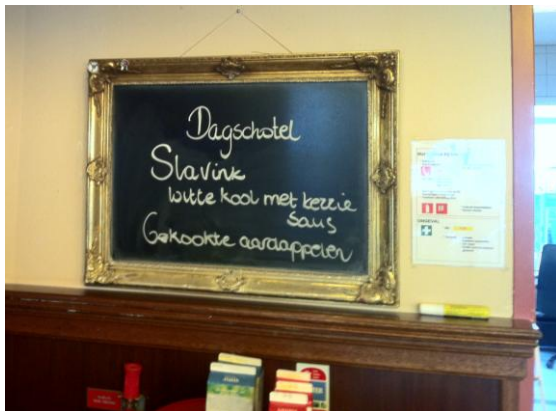 Dagschotel
Slavink
witte kool met kerrie
saus
Gekookte aardappelen
ONGEVAL